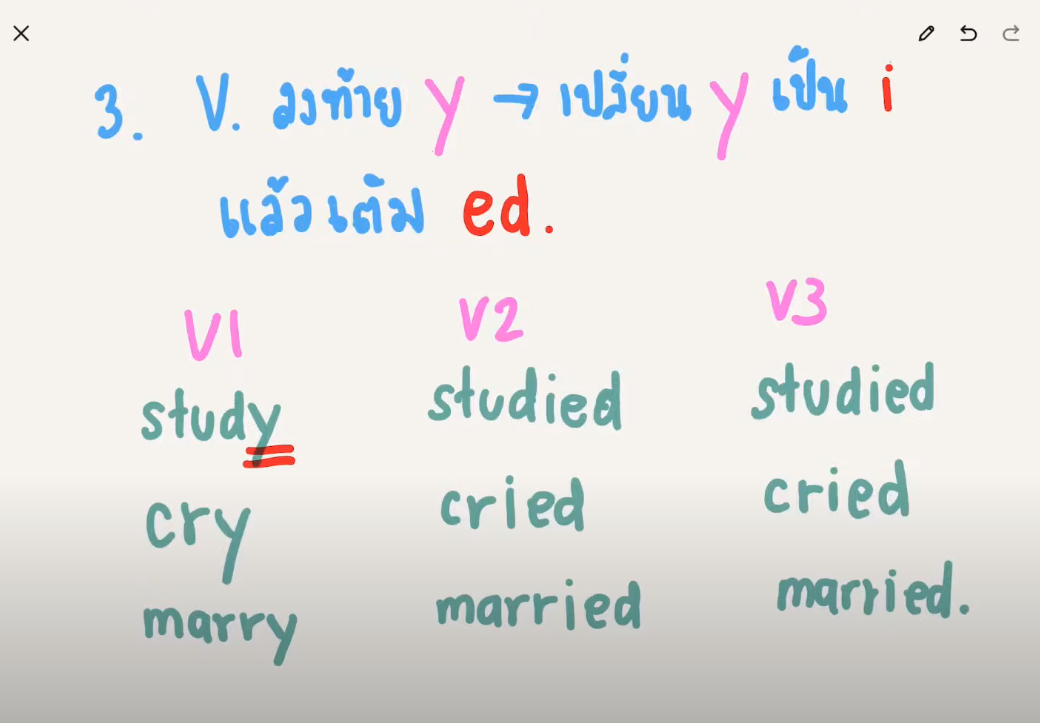 3. V. ลงท้าย y → เปลี่ยน y เป็น i
แล้วเติม ed.
V1 V2 V3
study studied studied
cry cried cried
marry married married.